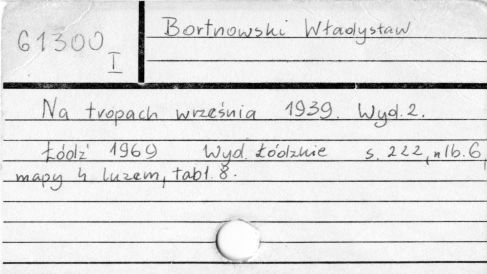 61300
I
Bortnowski Władysław
Na tropach września 1939. Wyd. 2.
Łódź 1969 Wyd. Łódzkie s. 222, nlb. 6,
mapy 4 luzem, tabl. 8.